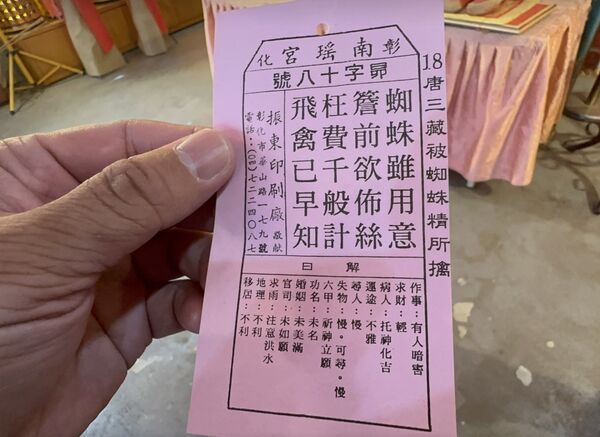 18唐三藏被蜘蛛精所擒
彰化南瑤宮
昴字十八號
蜘蛛雖用意
簷前欲佈絲
枉費千般計
飛禽已早知
振東印刷廠敬献
彰化市華山路一七九號
電話:(04)七二二四〇八七
解曰
作事:有人暗害
求財:輕
病人:托神化吉
運途:不雅
尋人:慢
失物:慢。可尋。慢
六甲:祈神立願
功名:未名
婚姻:未美滿
官司:未如願
求雨:注意洪水
地理:不利
移居:不利